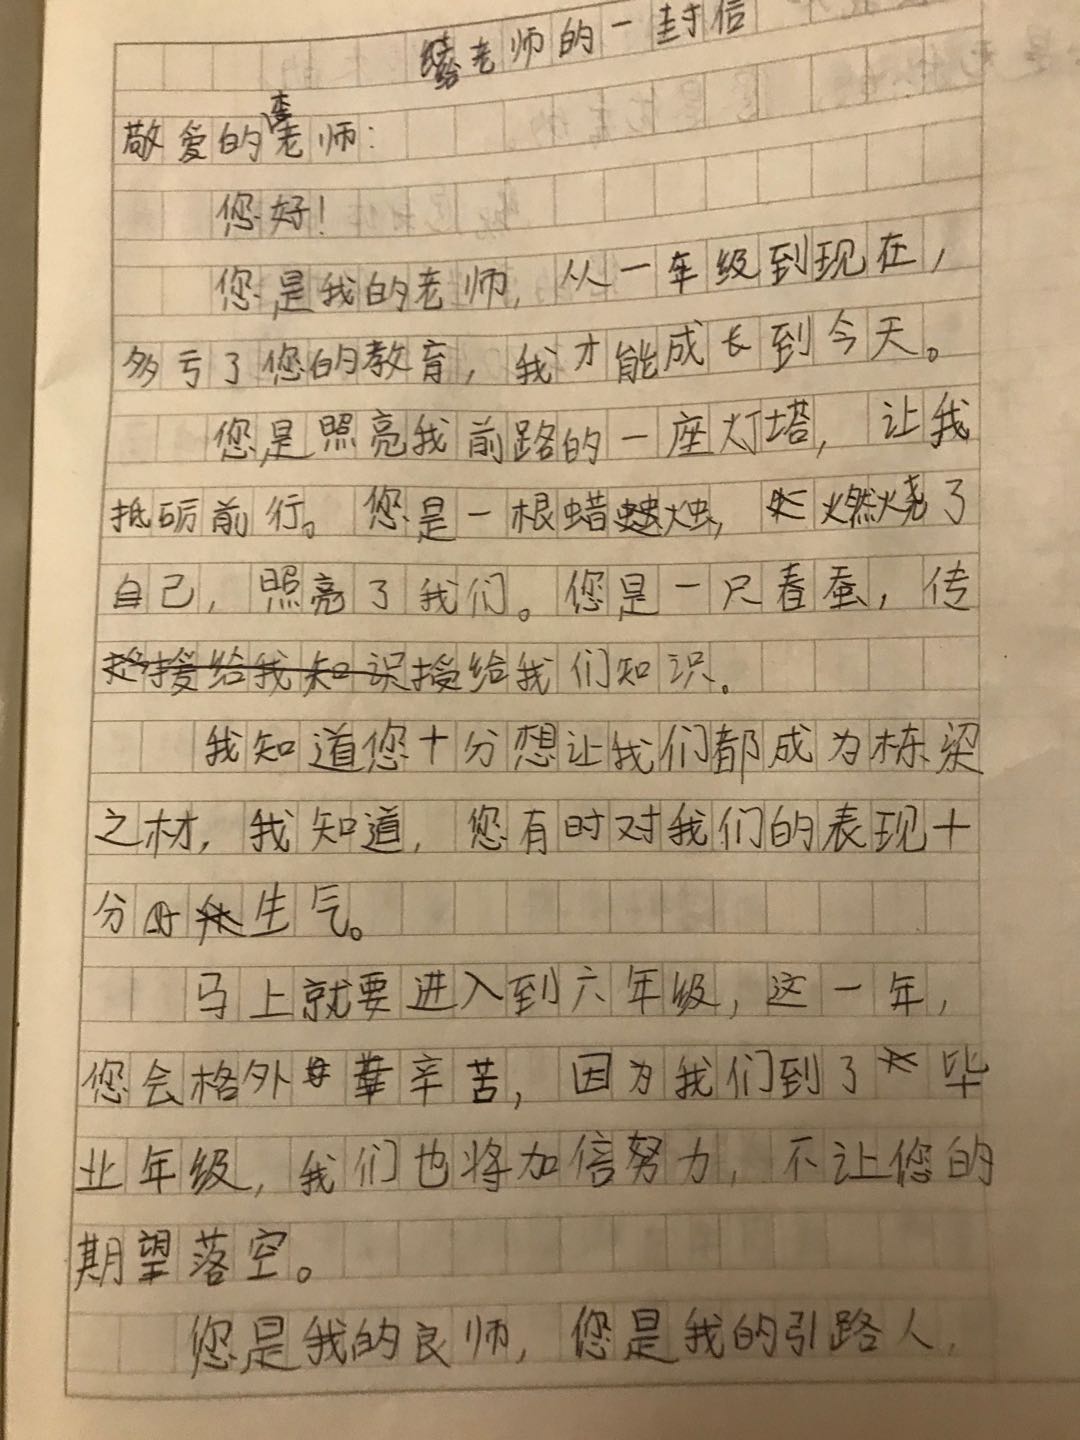 给老师的一封信
敬爱的李老师：
您好！
您是我的老师，从一年级到现在，
多亏了您的教育，我才能成长到今天。
您是照亮我前路的一座灯塔，让我
抵砺前行。您是一根蜡烛，燃烧了
自己，照亮了我们。您是一只春蚕，传
授给我们知识。
我知道您十分想让我们都成为栋梁
之材，我知道，您有时对我们的表现十
分生气。
马上就要进入到六年级，这一年，
您会格外辛苦，因为我们到了毕
业年级，我们也将加倍努力，不让您的
期望落空。
您是我的良师，您是我的引路人，